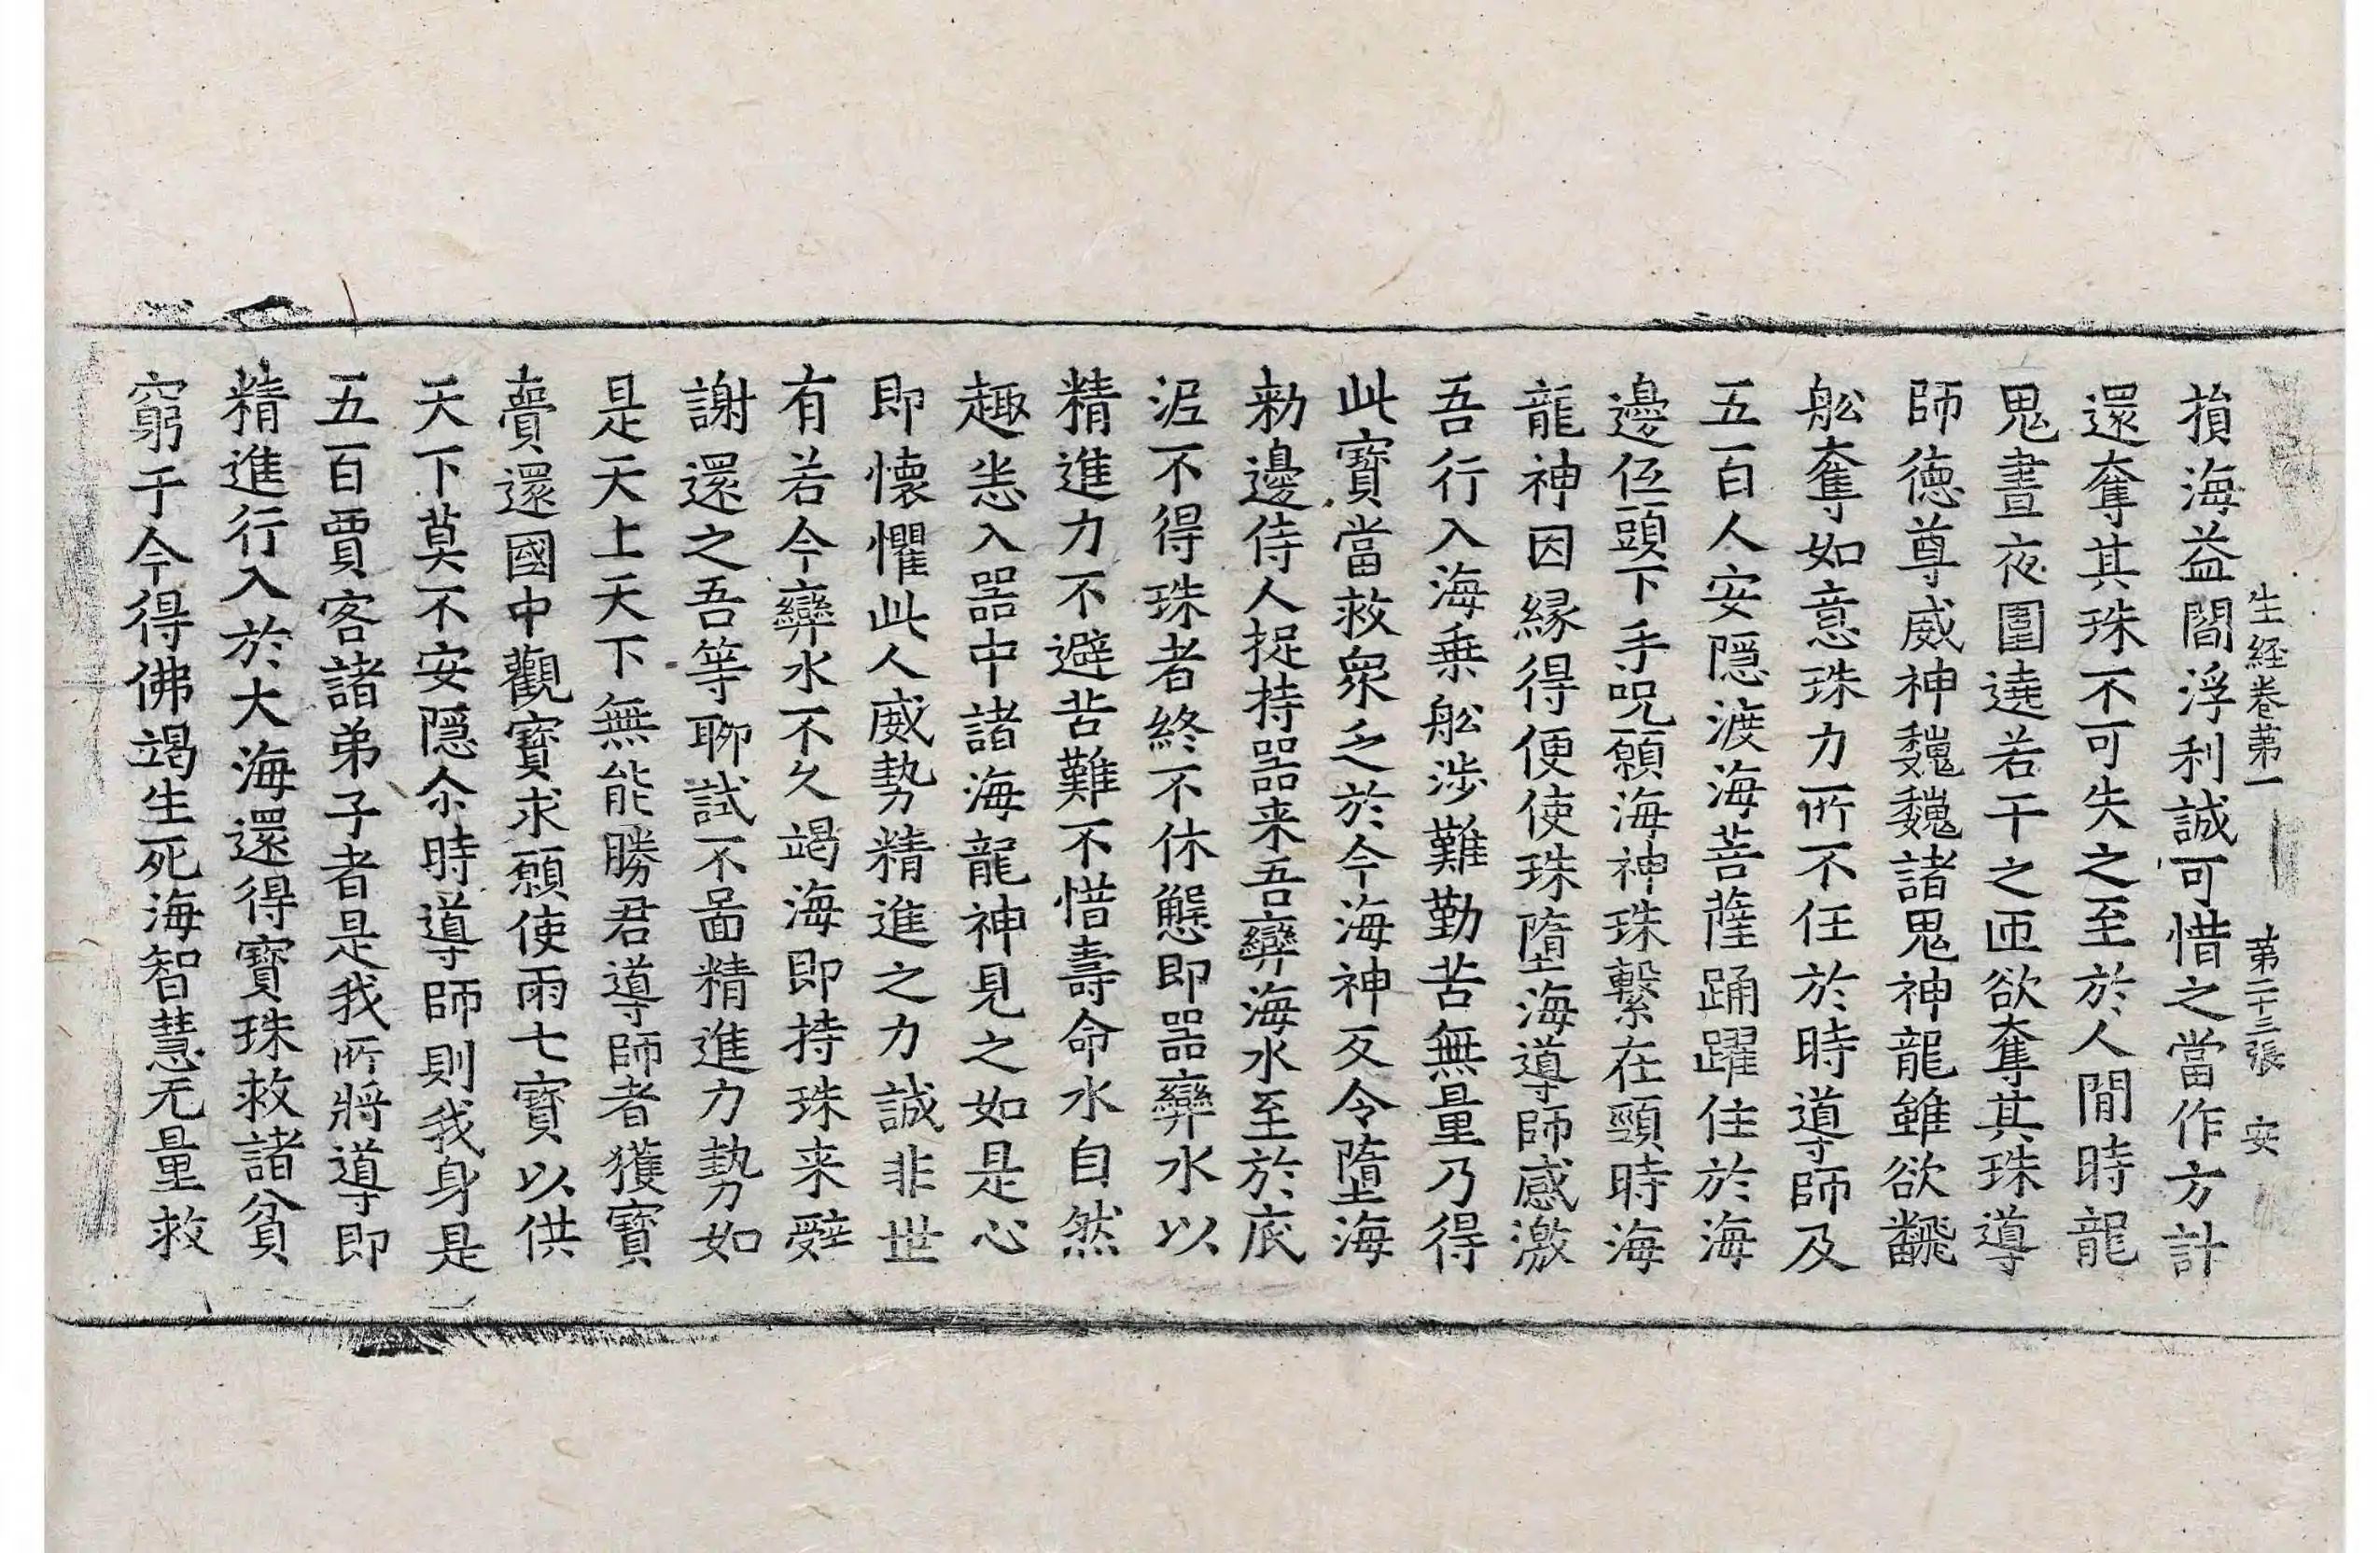 生經卷第一 第二十三張 安
損海益閻浮利誠可惜之當作方計
還奪其珠不可失之至於人間時龍
鬼晝夜圍遶若干之匝欲奪其珠導
師德尊威神魏魏諸鬼神龍雖欲飜
舩奪如意珠力所不任於時導師及
五百人安隱渡海菩薩踊躍住於海
邊伍頭下手呪願海神珠繫在頸時海
龍神因緣得便使珠墮海導師感激
吾行入海乗舩涉難勤苦無量乃得
此寶當救眾乏於今海神反令墮海
勑邊侍人捉持噐来吾㪺海水至於底
泥不得珠者終不休懈即噐㪺水以
精進力不避苦難不惜壽命水自然
趣悉入噐中諸海龍神見之如是心
即懷懼此人威勢精進之力誠非世
有若今㪺水不久竭海即持珠来辤
謝還之吾等聊試不啚精進力勢如
是天上天下無能勝君導師者獲寶
賷還國中觀寶求願使雨七寶以供
天下莫不安隱尒時導師則我身是
五百賈客諸弟子者是我所將導即
精進行入於大海還得寶珠救諸貧
窮于今得佛竭生死海智慧无量救